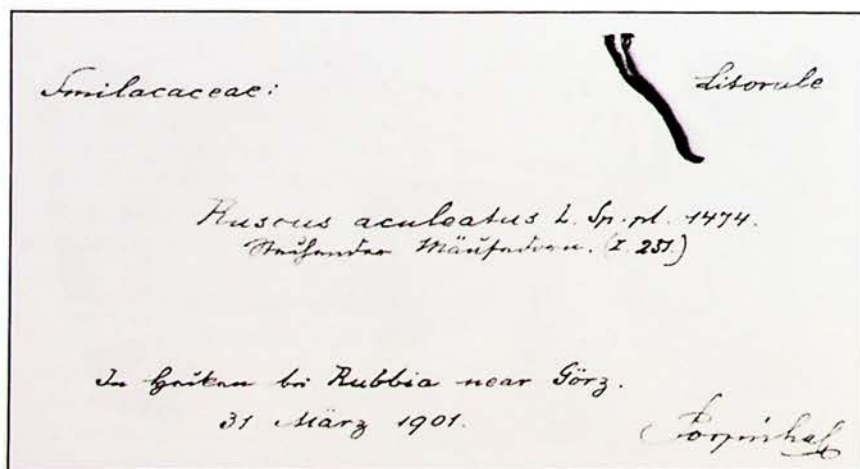 Smilacaceae: Litorale
Ruscus aculeatus L. Sp. pl. 1474.
Stechender Mäusedorn. (I. 231.)
In Hecken bei Rubbia near Görz.
31 März 1901.